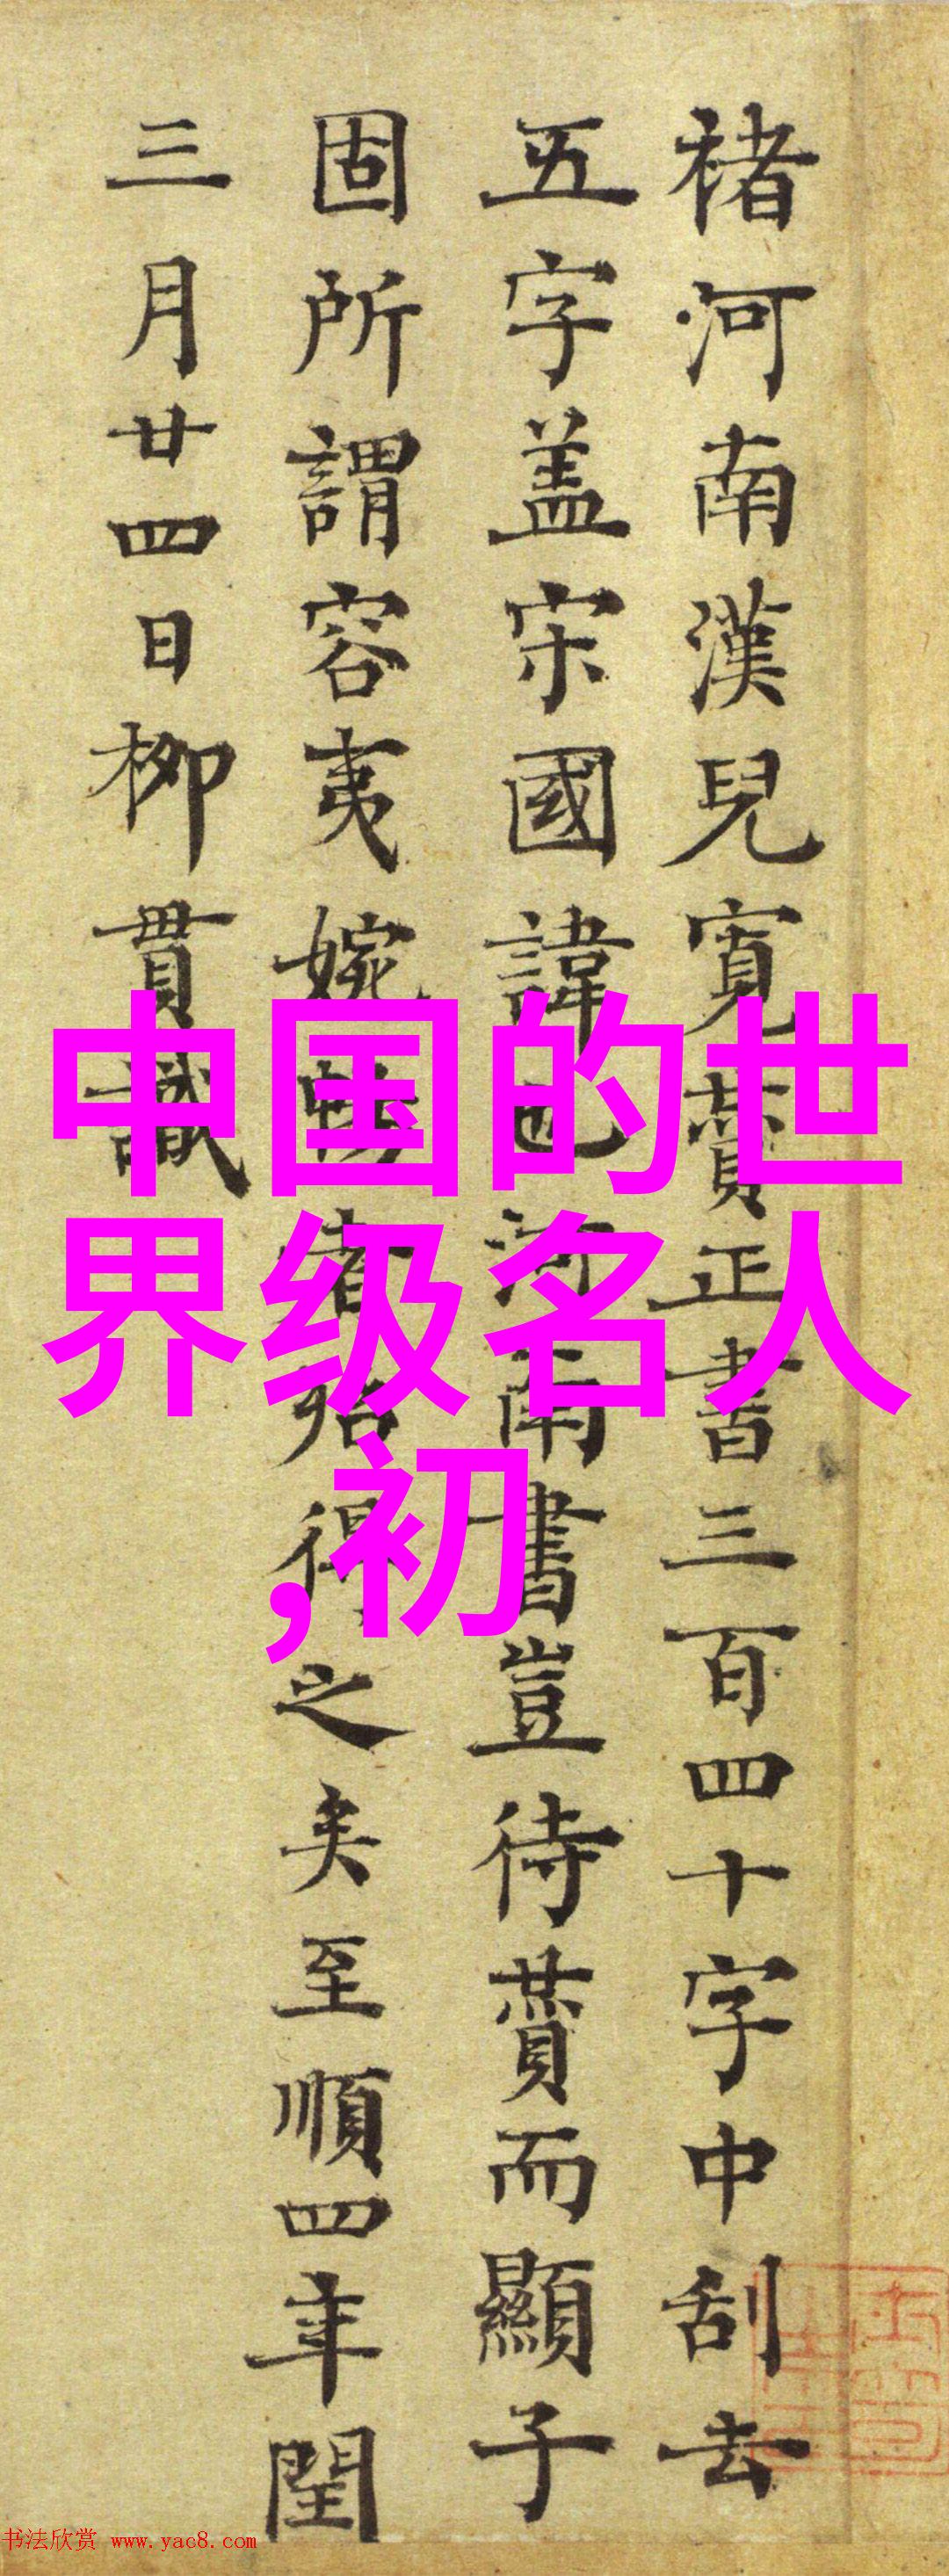 褚河南漢兒寬賛正書三百四十字中刮去
五字盖宋國諱也河南書豈待賛而顯子
固所謂容夷婉暢者殆得之矣至順四年閏
三月廿四日柳貫識
中国的世
界级名人
,初
书法欣赏 www.yac8.com